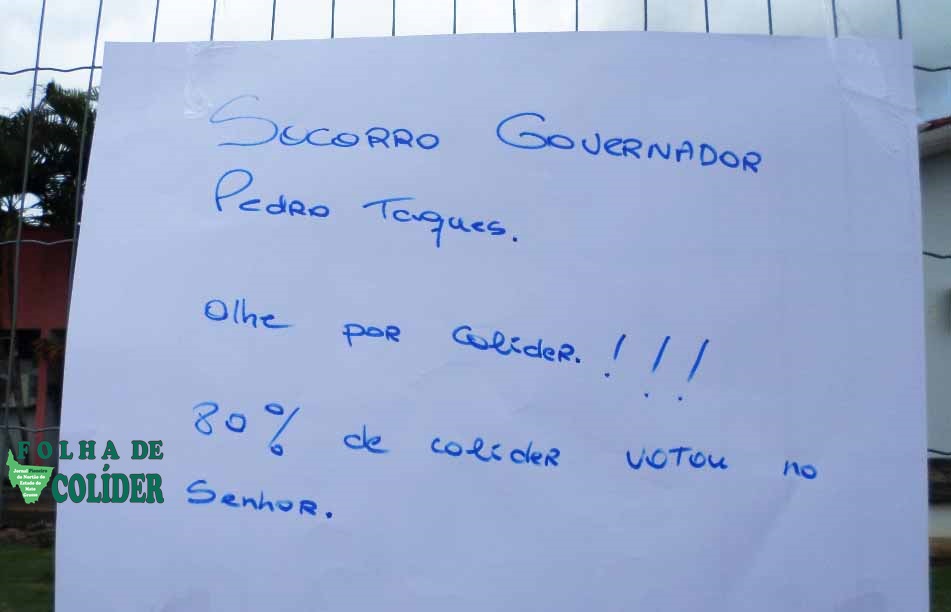 Socorro Governador
Pedro Taques.
Olhe por Colider.!!!
80% de colider votou no
Senhor.
FOLHA DE
COLÍDER
Jornal Pioneiro
do Nortão do
Estado de
Mato
Grosso